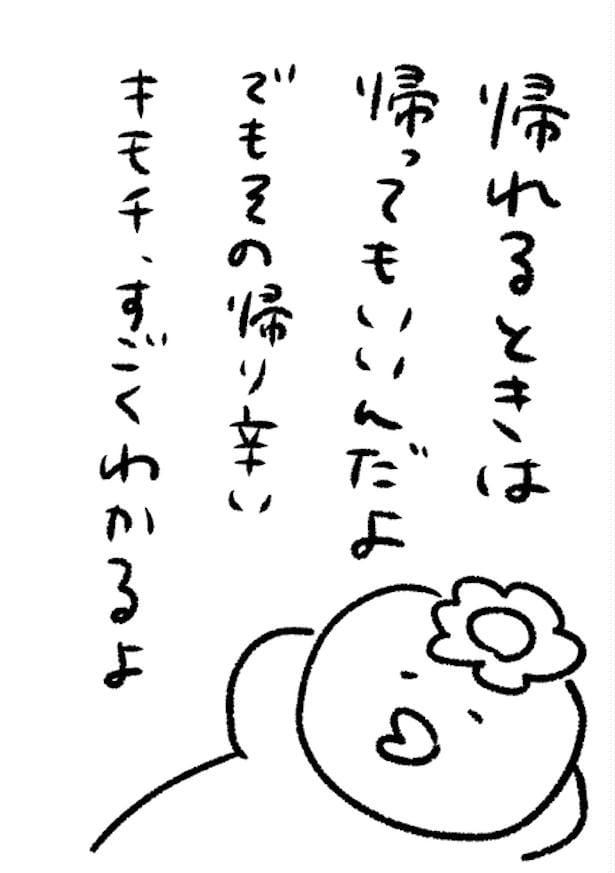 帰れるときは
帰ってもいいんだよ
でもその帰り辛い
キモチ、すごくわかるよ